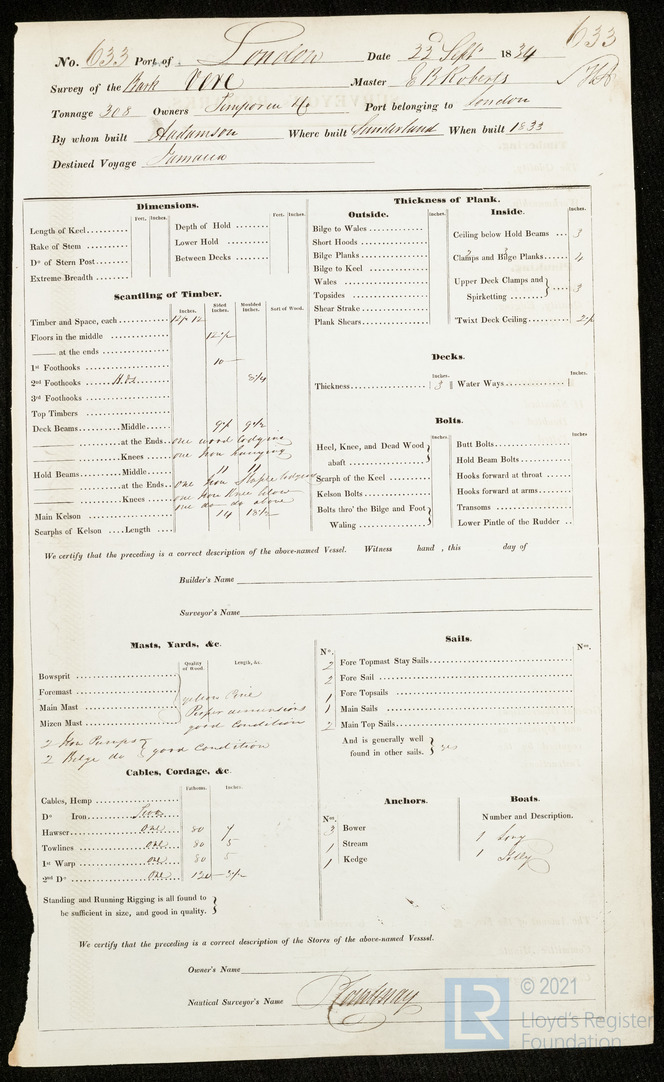 633
No. 633 Port of London Date 22 Sept 1834
Survey of the Bark Vere Master E B Roberts
Tonnage 308 Owners Port belonging to London
By whom built Adamson Where built Sunderland When built 1833
Destined Voyage Jamaica
Dimensions.
Feet. Inches. Feet. Inches.
Length of Keel Depth of Hold
Rake of Stem Lower Hold
Do of Stern Post Between Decks
Extreme Breadth
Scantling of Timber.
Inches. Sided Inches. Moulded Inches. Sort of Wood.
Timber and Space, each
Floors in the middle 12 1/2
—— at the ends
1st Foothooks 10
2nd Foothooks 8 3/4
3rd Foothooks
Top Timbers
Deck Beams Middle 9 1/2 9 1/2
—— at the Ends one wood lodging
—— Knees one Iron hanging
Hold Beams Middle 11 11
—— at the Ends one Iron Staple lodging
—— Knees one Iron Knee below
one do do above
Main Kelson 14 13 1/2
Scarphs of Kelson Length
Thickness of Plank.
Outside. Inches.
Bilge to Wales
Short Hoods
Bilge Planks
Bilge to Keel
Wales
Topsides
Shear Strake
Plank Shears
Inside. Inches.
Ceiling below Hold Beams 3
Clamps and Bilge Planks 4
Upper Deck Clamps and
Spirketting 3
'Twixt Deck Ceiling 2 1/2
Decks.
Inches. Inches.
Thickness 3 Water Ways
Bolts.
Inches. Inches
Heel, Knee, and Dead Wood
abaft
Scarph of the Keel
Kelson Bolts
Bolts thro' the Bilge and Foot
Waling
Butt Bolts
Hold Beam Bolts
Hooks forward at throat
Hooks forward at arms
Transoms
Lower Pintle of the Rudder
We certify that the preceding is a correct description of the above-named Vessel. Witness hand , this day of
Builder's Name
Surveyor's Name
Masts, Yards, &c.
Quality of Wood. Length, &c.
Bowsprit
Foremast yellow Pine
Main Mast Proper dimensions
Mizen Mast good Condition
2 Iron Pumps
2 Bilge do good Condition
Sails.
No. Nos.
2 Fore Topmast Stay Sails
2 Fore Sail
1 Fore Topsails
1 Main Sails
2 Main Top Sails
And is generally well
found in other sails. yes
Cables, Cordage, &c.
Fathoms. Inches.
Cables, Hemp
Do Iron
Hawser one 80 7
Towlines one 80 5
1st Warp one 80 5
2nd Do one 120 3 1/2
Standing and Running Rigging is all found to
be sufficient in size, and good in quality.
Anchors.
Nos.
3 Bower
1 Stream
1 Kedge
Boats.
Number and Description.
1 Long
1 Jolly
We certify that the preceding is a correct description of the Stores of the above-named Vesssel.
Owner's Name
Nautical Surveyor's Name Courtenay
LR
© 2021
Lloyd's Register
Foundation